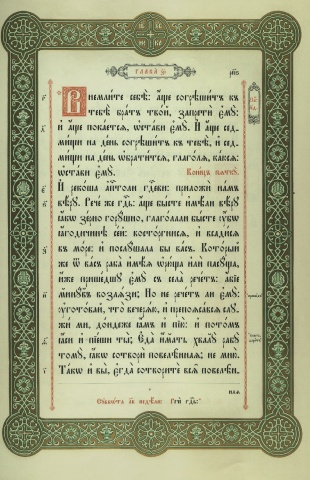 Глава з҃і
Внемлите себѣ: а҆ще согрѣшитъ къ
тебѣ братъ твой, запрети є҆мꙋ:
и҆ а҆ще покаетсѧ, ѡ҆стави є҆мꙋ. И҆ а҆ще сед-
мищи на день согрѣшитъ къ тебѣ, и҆ сед-
мищи на день ѡ҆братитсѧ, глаголѧ, каюсѧ:
ѡ҆стави є҆мꙋ. Конецъ пѧткꙋ.
И҆ рекоша а҆п҃толи гд҃еви: приложи намъ
вѣрꙋ. Рече же гд҃ь: а҆ще бысте и҆мѣли вѣрꙋ
ꙗ҆кѡ зерно горꙋшно, глаголали бысте ᲂу҆бѡ
ꙗ҆годичинѣ сей: восторгнисѧ, и҆ всадисѧ
въ море: и҆ послꙋшала бы васъ. Который
же ѿ васъ раба и҆мѣѧ ѡ҆рюща и҆лѝ пасꙋща,
и҆же пришедшꙋ є҆мꙋ съ села речетъ: а҆бїе
минꙋвъ возлѧзи; Но не речетъ ли є҆мꙋ:
ᲂу҆готовай, что вечерѧю, и҆ препоѧсавсѧ слꙋ-
жи ми, дондеже ꙗ҆мъ и҆ пїю: и҆ потомъ
ꙗ҆си и҆ пїеши ты; Є҆да и҆мать хвалꙋ рабꙋ
томꙋ, ꙗ҆кѡ сотвори повелѣннаѧ; не мню.
Такѡ и҆ вы, є҆гда сотворите всѧ повелѣн-
наѧ